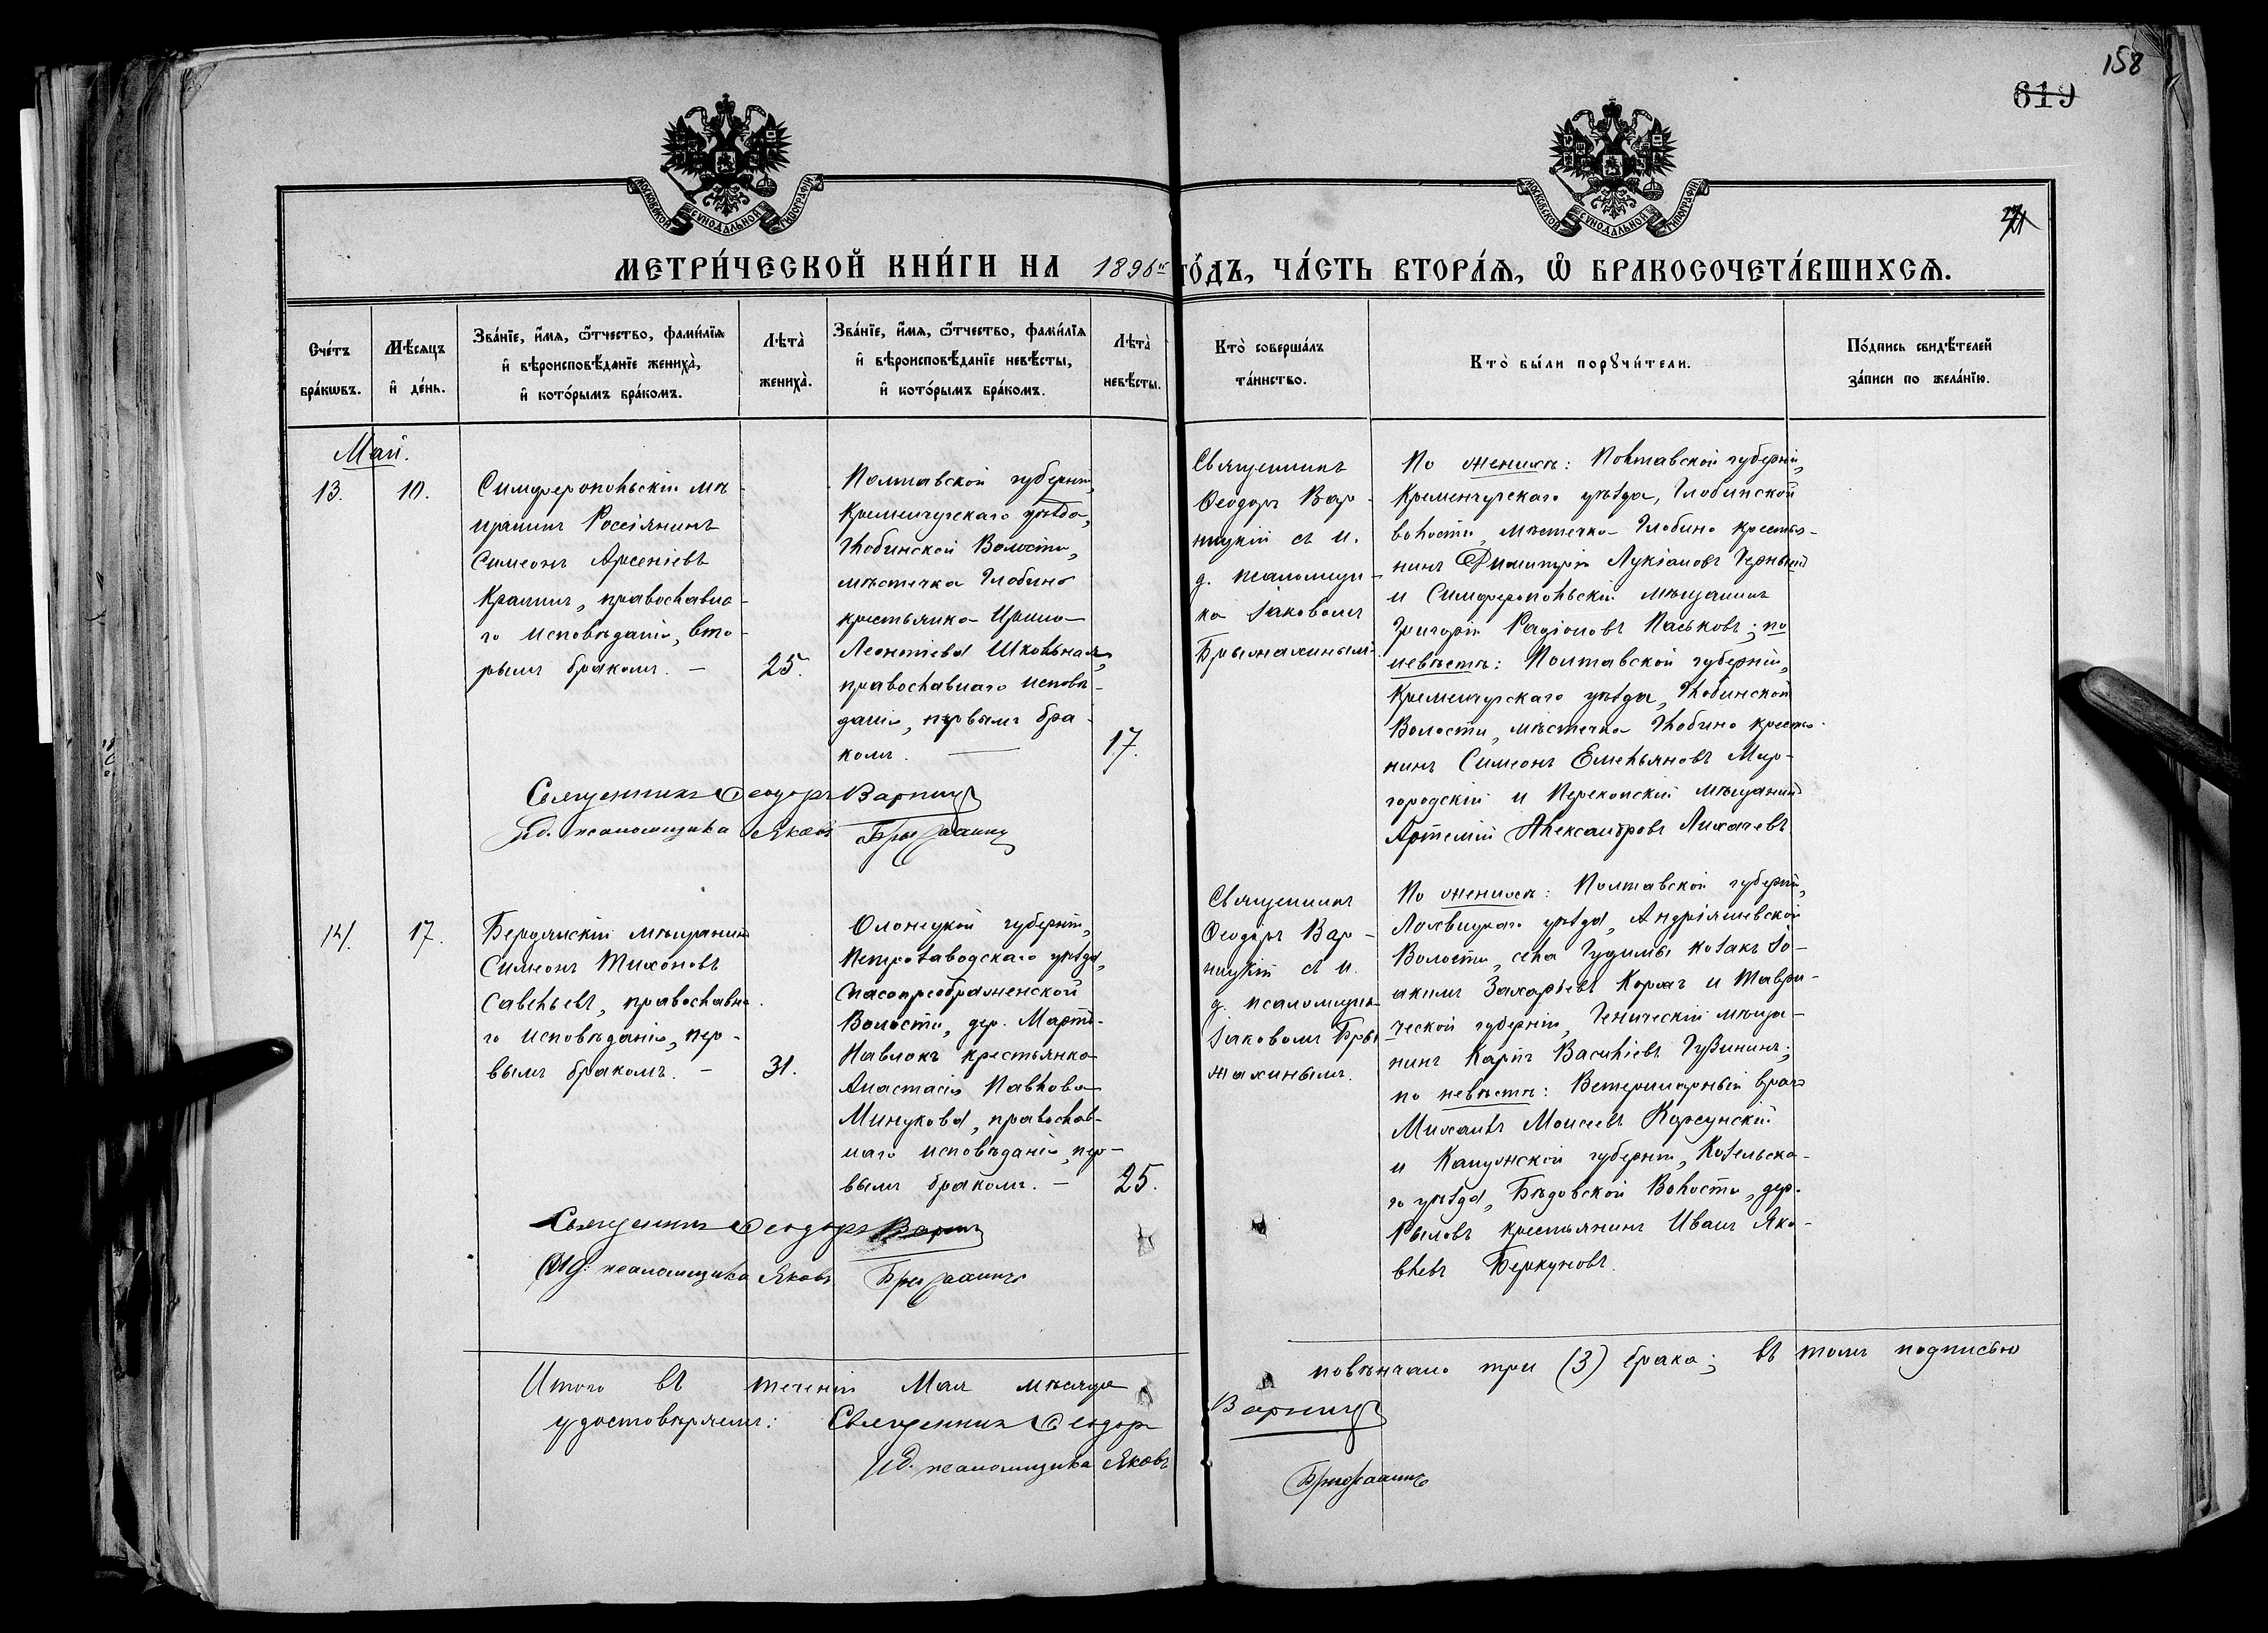 158
619
МОСКОВСКОЙ СѴНОДАЛЬНОЙ ТИПОГРАФІИ
МОСКОВСКОЙ СѴНОДАЛЬНОЙ ТИПОГРАФІИ
МЕТРИ́ЧЕСКОЙ КНИ́ГИ НА 1896й ГО́ДЪ, ЧА́СТЬ ВТОРА́Ѧ, Ѽ БРАКОСОЧЕТА́ВШИХСѦ.
Сче́тъ
бра́кѡвъ.
Мѣ́сяцъ
и҆ де́нь.
Зва́нїе, и҆́мѧ, ѻ҆́тчество, фами́лїѧ
и҆ вѣроисповѣ́данїе жениха̀,
и҆ кото́рымъ бра́комъ.
Лѣта̀
жениха̀.
Зва́нїе, и҆́мѧ, ѻ҆́тчество, фами́лїѧ
и҆ вѣроисповѣ́данїе невѣ́сты,
и҆ кото́рымъ бра́комъ.
Лѣта̀
невѣ́сты.
Кто̀ соверша́лъ
та́инство.
Кто̀ бы́ли порꙋчи́тели.
По́дпись свидѣ́телей
за́писи по жела́нїю.
Май.
13.
10.
Симферопольскій мѣ-
щанинъ Россіянинъ
Симеонъ Арсеніевъ
Крапинъ, православна-
го исповѣданія, вто-
рымъ бракомъ. —
25.
Полтавской губерніи,
Кременчугскаго уѣзда,
Глобинской Волости,
мѣстечка Глобино
крестьянка Ирина
Леонтіева Школьная,
православнаго исповѣ-
данія, первымъ бра-
комъ. —
17.
Священникъ
Ѳеодоръ Вар-
ницкій съ и.
д. псаломщи-
ка Іаковомъ
Брыжахинымъ.
По женихѣ: Полтавской губерніи,
Кременчугскаго уѣзда, Глобинской
волости, мѣстечка Глобино крестья-
нинъ Димитрій Лукіановъ Черный
и Симферопольскій мѣщанинъ
Григорій Радіоновъ Паськовъ; по
невѣстѣ: Полтавской губерніи,
Кременчугскаго уѣзда, Глобинской
Волости, мѣстечка Глобино крестья-
нинъ Симеонъ Емельяновъ Мир-
городскій и Перекопскій мѣщанинъ
Артемій Александровъ Лихачевъ.
Священникъ Ѳеодоръ Варниц
Ид. псаломщика Яковъ
14.
17.
Бердянскій мѣщанинъ
Симеонъ Тихоновъ
Савельевъ, православна-
го исповѣданія, пер-
вымъ бракомъ. —
31.
Олонецкой губерніи,
Петрозаводскаго уѣзда,
Спасопреображенской
Волости, дер. Марть-
Навлокъ крестьянка
Анастасія Павлова
Минукова, православ-
наго исповѣданія, пер-
вымъ бракомъ. —
25.
Священникъ
Ѳеодоръ Вар-
ницкій съ и.
д. псаломщика
Іаковомъ Бры-
жахинымъ.
По женихѣ: Полтавской губерніи,
Лохвицкаго уѣзда, Андріяшевской
Волости, села Гудимы козакъ Іо-
акимъ Захарьевъ Корлач и Таври-
ческой губерніи, Геническій мѣща-
нинъ Карпъ Васильевъ Гузининъ;
по невѣстѣ: Ветеринарный врачъ
Михаилъ Моисеевъ Корсунскій
и Калужской губерніи, Козельска-
го уѣзда, Бѣдовской Волости, дер.
Рыловъ крестьянинъ Иванъ Яко-
влевъ Беркуновъ.
Священникъ Ѳеодоръ Варниц
Ид. псаломщика Яковъ
Итого въ теченіи Мая мѣсяца повѣнчано три (3) брака; въ томъ подписью
удостовѣряемъ: Священникъ Ѳеодоръ Варниц
Ид. псаломщика Яковъ